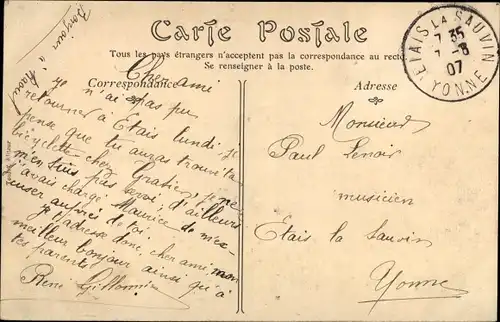 Carte Postale
Tous les pays étrangers n'acceptent pas la correspondance au recto
Se renseigner à la poste.
Correspondance
Adresse
ETAIS-LA-SAUVIN
7 35
7 -8
07
YONNE
Bonjour à
Cher ami
je n'ai pas pu
retourner à Etais lundi. je
pense que tu auras trouvé ta
bicyclette chez Gratien, je ne
m'en suis pas servi, d'ailleurs
j'avais chargé Maurice de m'ex-
cuser auprès de toi.
je t'adresse donc, cher ami, mon
meilleur bonjour ainsi qu'à
tes parents
René
Monsieur
Paul Lenoir
musicien
Etais la Sauvin
Yonne